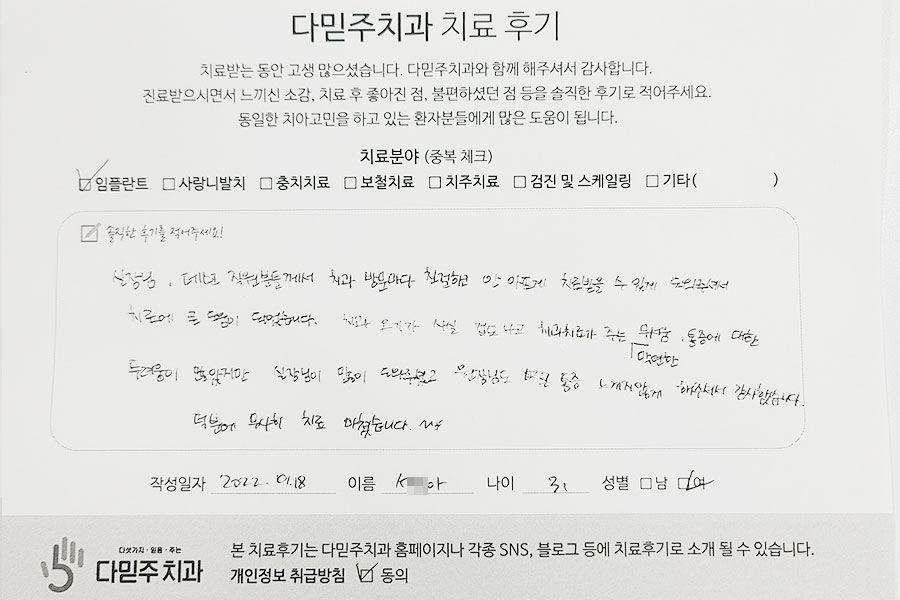 다믿주치과 치료 후기
치료받는 동안 고생 많으셨습니다. 다믿주치과와 함께 해주셔서 감사합니다.
진료받으시면서 느끼신 소감, 치료 후 좋아진 점, 불편하셨던 점 등을 솔직한 후기로 적어주세요.
동일한 치아고민을 하고 있는 환자분들에게 많은 도움이 됩니다.
치료분야 (중복 체크)
임플란트 사랑니발치 충치치료 보철치료 치주치료 검진 및 스케일링 기타( )
솔직한 후기를 적어주세요!
실장님, 데스크 직원분들께서 치과 방문마다 친절하고 안 아프게 치료받을 수 있게 도와주셔서
치료에 큰 도움이 되었습니다. 치과 오기가 사실 겁도 나고 치과치료가 주는 , 통증에 대한
막연한
두려움이 많았지만 실장님이 많이 도와주셨고 원장님도 통증 느껴지않게 해주셔서 감사했습니다.
덕분에 무사히 치료 마쳤습니다.
작성일자 2022. 01.18 이름 K 아 나이 31 성별 남 여
다섯가지·믿음·주는
다믿주치과
본 치료후기는 다믿주치과 홈페이지나 각종 SNS, 블로그 등에 치료후기로 소개 될 수 있습니다.
개인정보 취급방침 동의